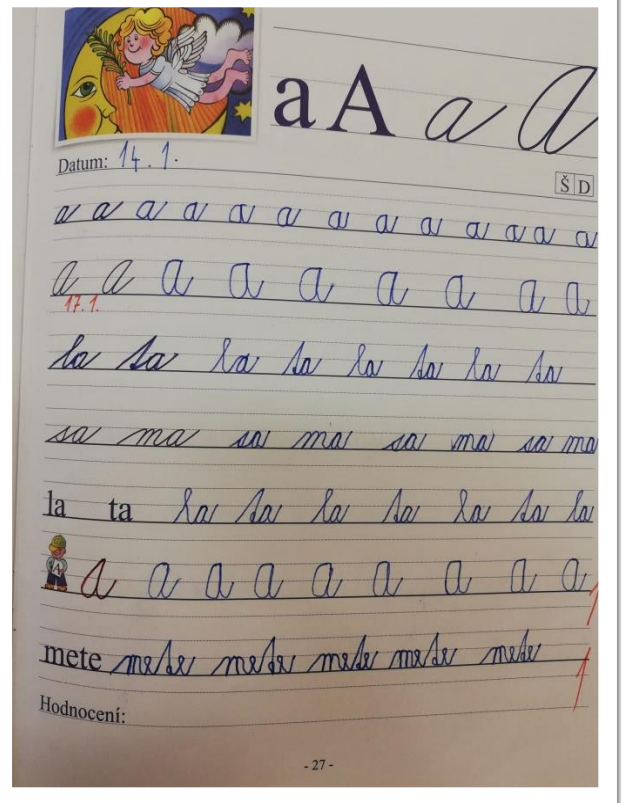 a A a A
Datum: 14. 1.
Š D
a a a a a a a a a a a a a
A A A A A A A A A
17. 1.
la ta la ta la ta la ta
sa ma sa ma sa ma sa ma
la ta la ta la ta la ta la
A A A A A A A A A
1
mete mete mete mete mete mete
1
Hodnocení:
- 27 -